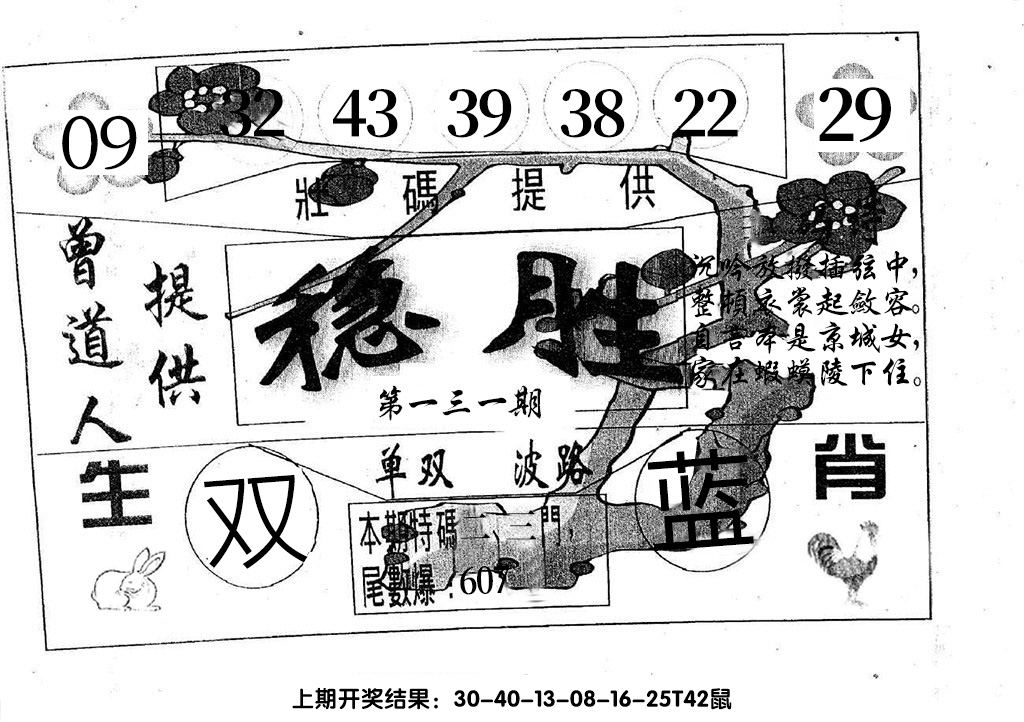 09 32 43 39 38 22 29
壯碼提供
曾道人
提供
稳胜
第一三一期
沉吟放撥插弦中,
整頓衣裳起斂容。
自言本是京城女,
家在蝦蟆陵下住。
单双 波路
生肖
双
蓝
本期特碼二、三門,
尾數爆:607
上期开奖结果:30-40-13-08-16-25T42鼠